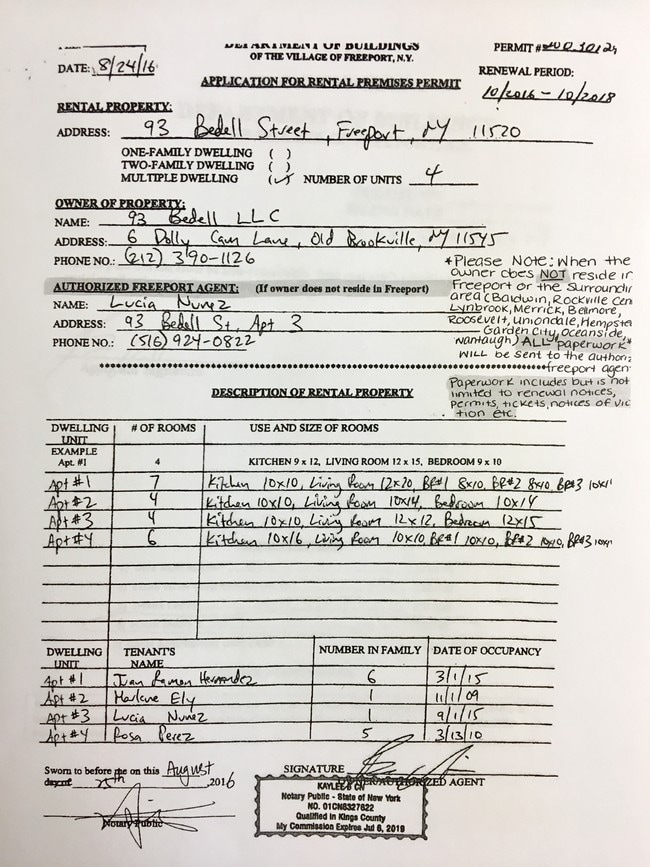 DEPARTMENT OF BUILDINGS
OF THE VILLAGE OF FREEPORT, N.Y.
PERMIT #
DATE: 8/24/16
RENEWAL PERIOD:
10/2016 - 10/2018
APPLICATION FOR RENTAL PREMISES PERMIT
RENTAL PROPERTY:
ADDRESS: 93 Bedell Street, Freeport, NY 11520
ONE-FAMILY DWELLING ( )
TWO-FAMILY DWELLING ( )
MULTIPLE DWELLING (✓) NUMBER OF UNITS 4
OWNER OF PROPERTY:
NAME: 93 Bedell LLC
ADDRESS: 6 Dolly Cam Lane, Old Brookville, NY 11545
PHONE NO.: (212) 390-1126
AUTHORIZED FREEPORT AGENT: (If owner does not reside in Freeport)
NAME: Lucia Nunez
ADDRESS: 93 Bedell St, Apt 3
PHONE NO.: (516) 924-0822
*Please Note: When the
owner does NOT reside in
Freeport or the Surroundin
area (Baldwin, Rockville Cen
Lynbrook, Merrick, Bellmore,
Roosevelt, Uniondale, Hempste
Garden City, Oceanside,
Wantaugh) ALL "paperwork"
will be sent to the authori
freeport agen
Paperwork includes but is not
limited to renewal notices,
permits, tickets, notices of vio
tion etc.
DESCRIPTION OF RENTAL PROPERTY
DWELLING UNIT # OF ROOMS USE AND SIZE OF ROOMS
EXAMPLE
Apt. #1 4 KITCHEN 9 x 12, LIVING ROOM 12 x 15, BEDROOM 9 x 10
Apt #1 7 Kitchen 10x10, Living Room 12x20, BR#1 8x10, BR#2 8x10, BR#3 10x11
Apt #2 4 Kitchen 10x10, Living Room 10x14, Bedroom 10x14
Apt #3 4 Kitchen 10x10, Living Room 12x12, Bedroom 12x15
Apt #4 6 Kitchen 10x16, Living Room 10x10, BR#1 10x10, BR#2 10x10, BR#3
DWELLING UNIT TENANT'S NAME NUMBER IN FAMILY DATE OF OCCUPANCY
Apt #1 Juan Ramon Hernandez 6 3/1/15
Apt #2 Marlene Ely 1 11/1/09
Apt #3 Lucia Nunez 1 9/1/15
Apt #4 Rosa Perez 5 3/13/10
Sworn to before me on this August
day of 25th, 2016
SIGNATURE
OWNER/AUTHORIZED AGENT
Notary Public
KAYLEE B CN
Notary Public - State of New York
NO. 01CN6327622
Qualified in Kings County
My Commission Expires Jul 6, 2019